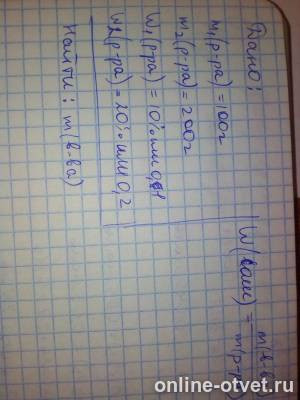 Дано:
m₁(р-ра) = 100г
m₂(р-ра) = 200г
W₁(р-ра) = 10% или 0,1
W₂(р-ра) = 20% или 0,2
Найти: m(в-ва)
m(в-ва)
W( ) = 
m(р-ра)
online-otvet.ru